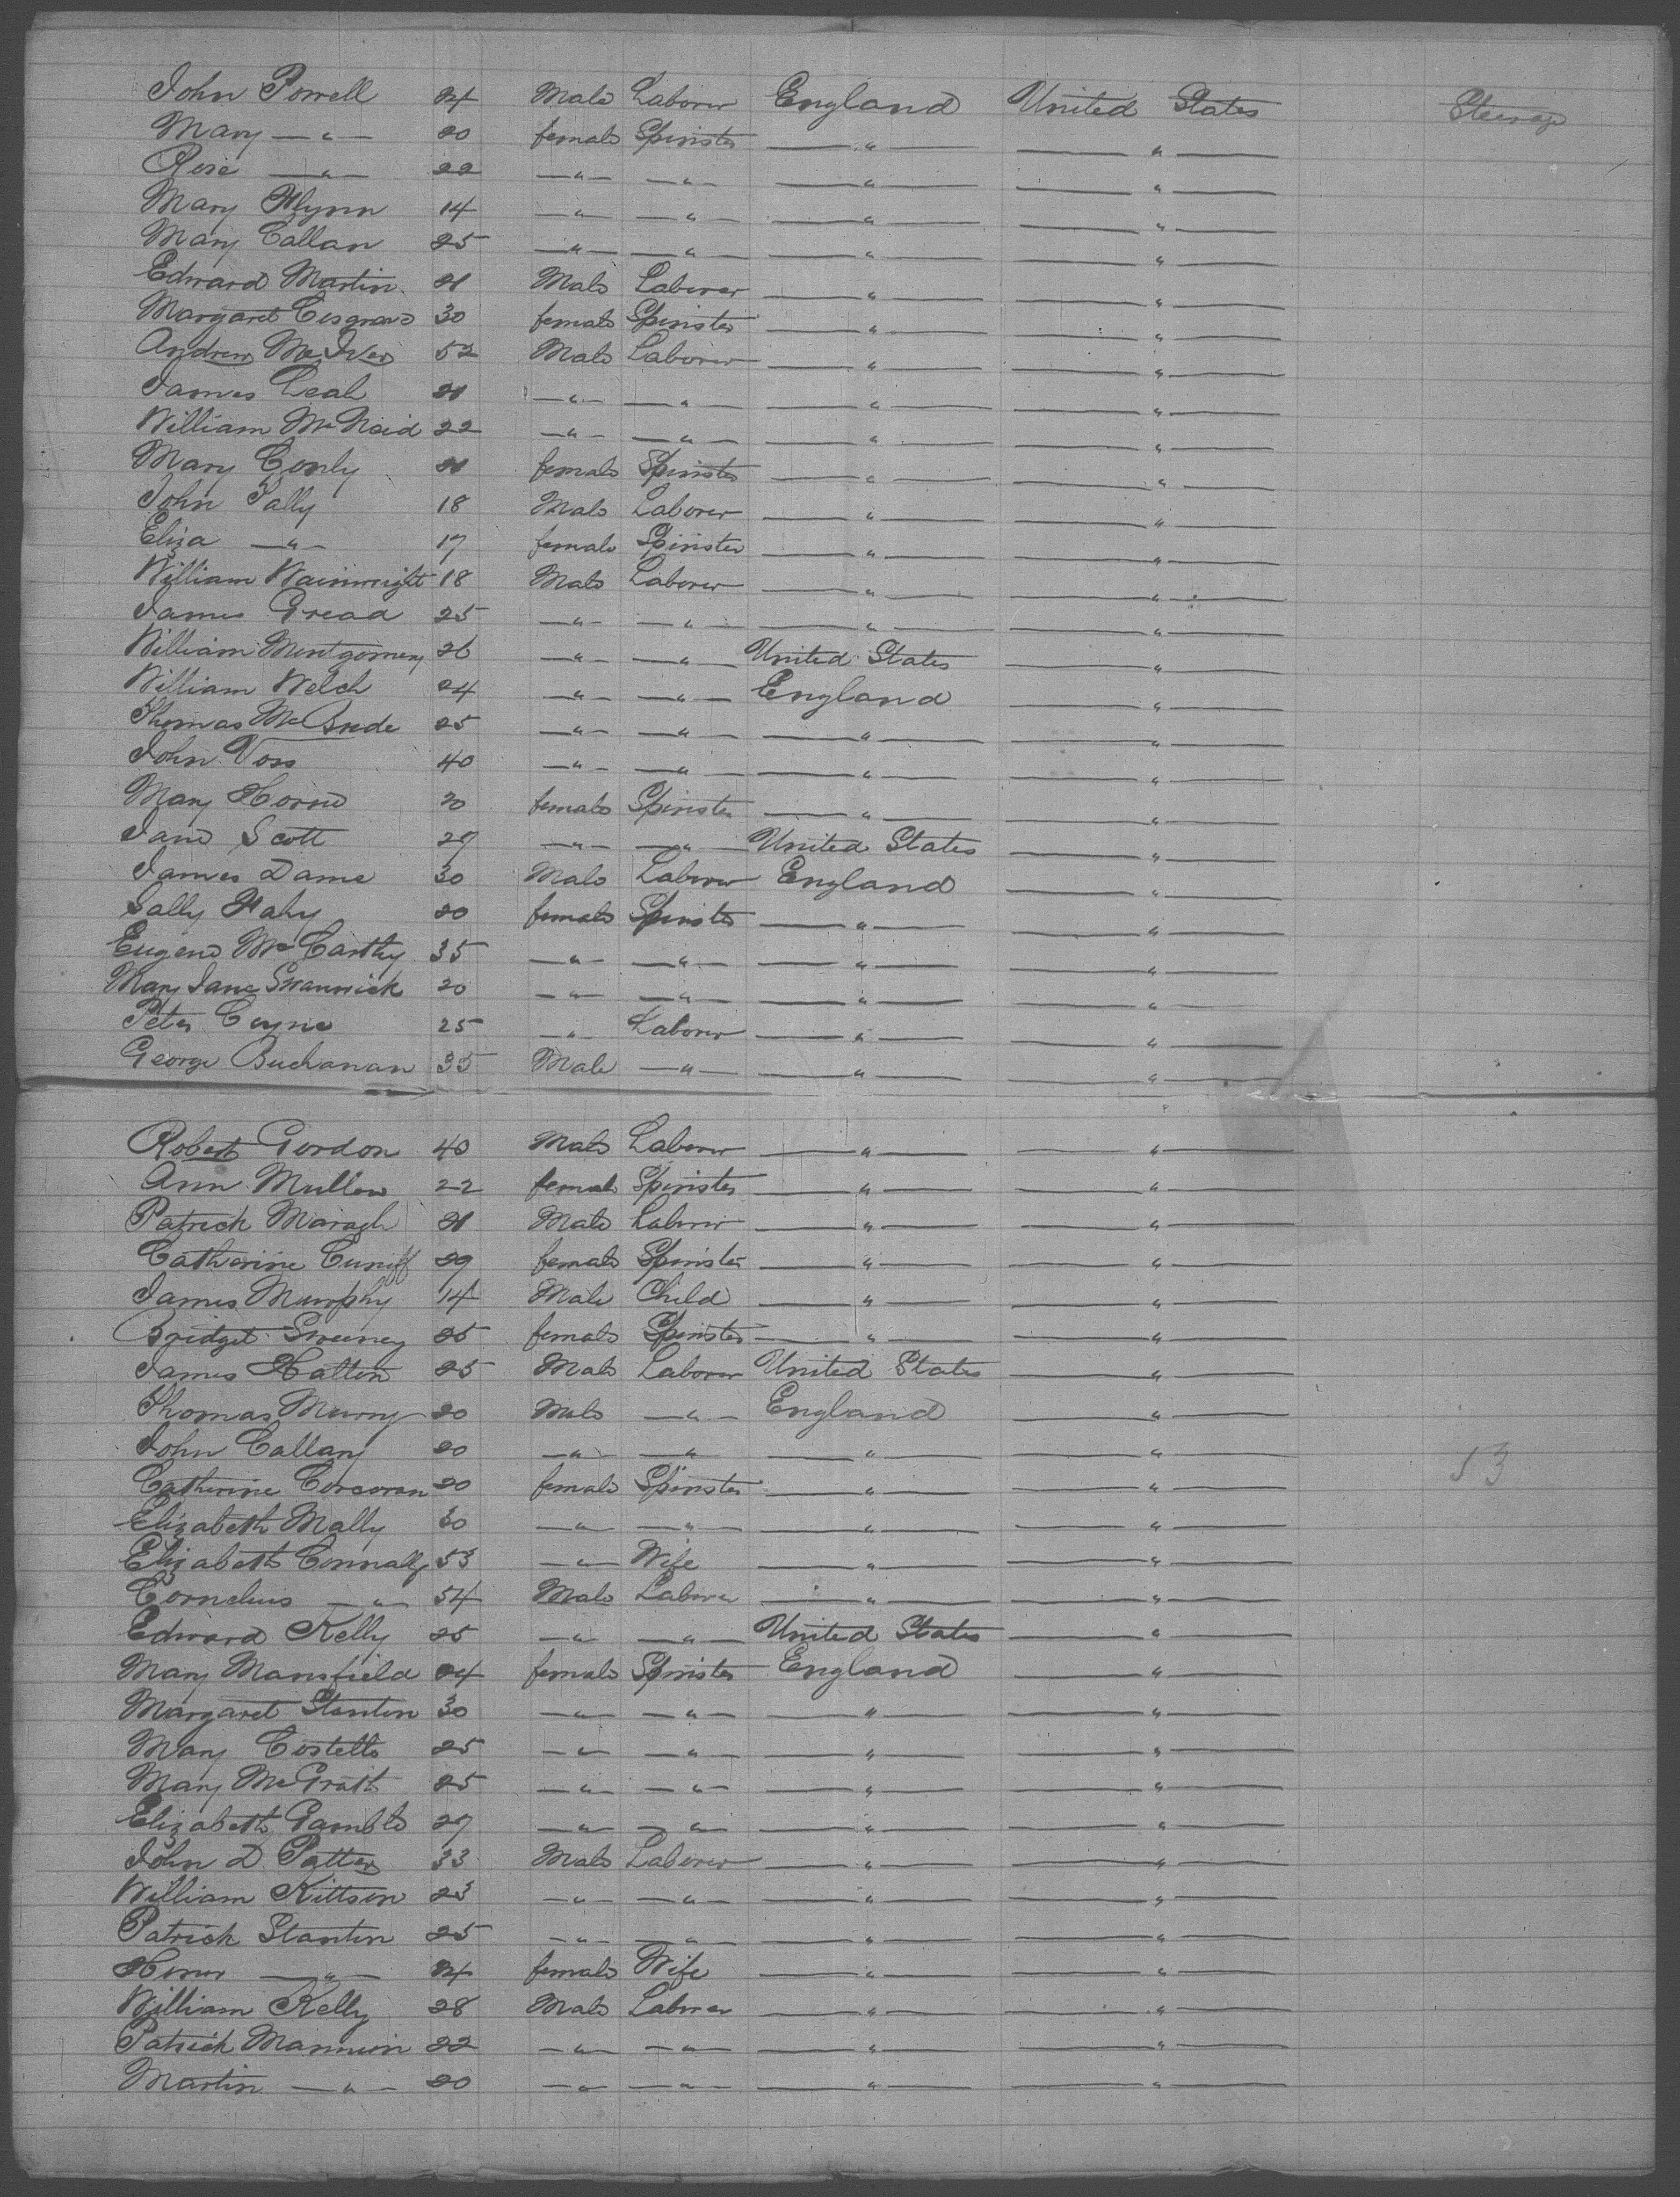 John Powell 24 Male Laborer England United States Steerage
Mary — " — 20 female Spinster — " — — " —
Rose — " — 22 — " — — " — — " — — " —
Mary Flynn 14 — " — — " — — " — — " —
Mary Callan 25 — " — — " — — " — — " —
Edward Martin 21 Male Laborer — " — — " —
Margaret Cosgrave 30 female Spinster — " — — " —
Andrew McIver 52 Male Laborer — " — — " —
James Leah 21 — " — — " — — " — — " —
William McNeid 22 — " — — " — — " — — " —
Mary Conly 21 female Spinster — " — — " —
John Tally 18 Male Laborer — " — — " —
Eliza — " — 17 female Spinster — " — — " —
William Wainwright 18 Male Laborer — " — — " —
James Gread 25 — " — — " — — " — — " —
William Montgomery 26 — " — — " — United States — " —
William Welch 24 — " — — " — England — " —
Thomas McBride 25 — " — — " — — " — — " —
John Voss 40 — " — — " — — " — — " —
Mary Horne 20 female Spinster — " — — " —
Jane Scott 27 — " — — " — United States — " —
James Dame 30 Male Laborer England — " —
Sally Fahy 20 female Spinster — " — — " —
Eugene McCarthy 35 — " — — " — — " — — " —
Mary Jane Swanwick 20 — " — — " — — " — — " —
Peter Coyne 25 — " Laborer — " — — " —
George Buchanan 35 Male — " — — " — — " —
Robert Gordon 40 Male Laborer — " — — " —
Ann Mullen 22 female Spinster — " — — " —
Patrick Maragh 21 Male Laborer — " — — " —
Catherine Cuniff 29 female Spinster — " — — " —
James Murphy 14 Male Child — " — — " —
Bridget Sweeney 25 female Spinster — " — — " —
James Hatton 25 Male Laborer United States — " —
Thomas Murry 20 Male — " — England — " —
John Callany 20 — " — — " — — " — — " —
Catherine Corcoran 20 female Spinster — " — — " — 53
Elizabeth Mally 30 — " — — " — — " — — " —
Elizabeth Connally 53 — " — Wife — " — — " —
Cornelius — " — 54 Male Laborer — " — — " —
Edward Kelly 25 — " — — " — United States — " —
Mary Mansfield 24 female Spinster England — " —
Margaret Stanton 30 — " — — " — — " — — " —
Mary Costello 25 — " — — " — — " — — " —
Mary McGrath 25 — " — — " — — " — — " —
Elizabeth Gamble 27 — " — — " — — " — — " —
John D Patten 33 Male Laborer — " — — " —
William Kittson 23 — " — — " — — " — — " —
Patrick Stanton 25 — " — — " — — " — — " —
Honor — " — 24 female Wife — " — — " —
William Kelly 28 Male Laborer — " — — " —
Patrick Mannion 22 — " — — " — — " — — " —
Martin — " — 20 — " — — " — — " — — " —